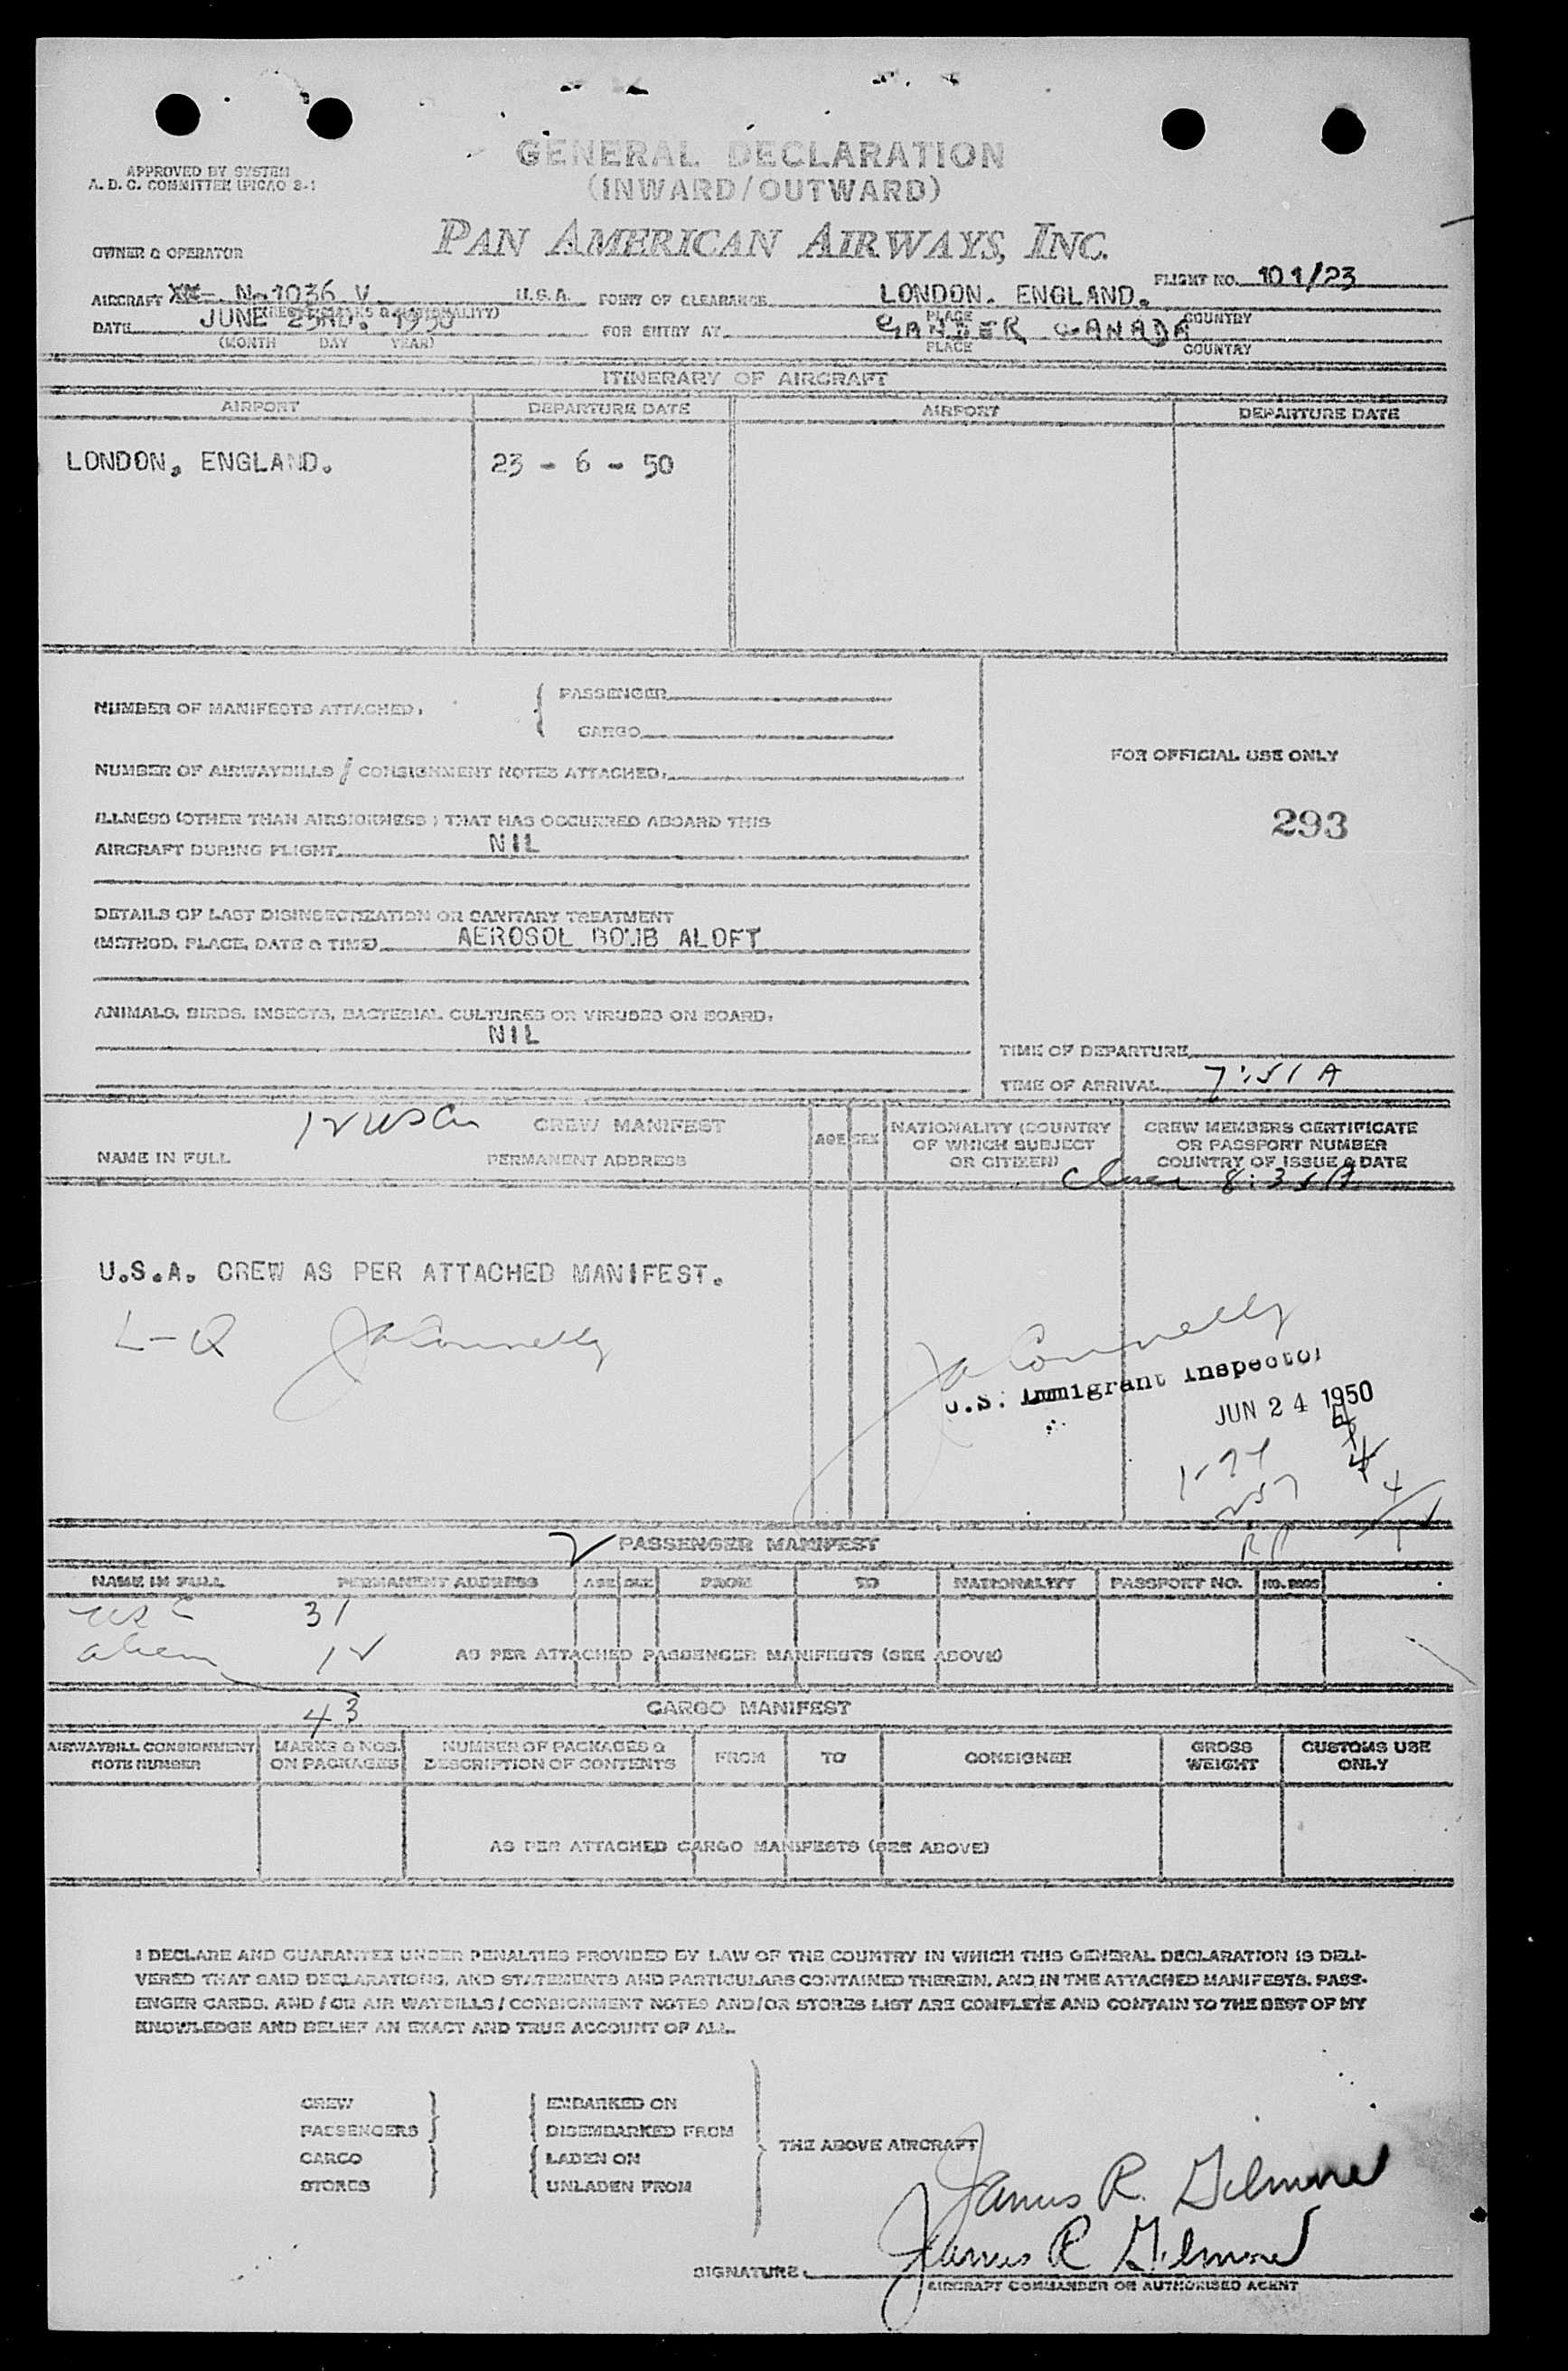 GENERAL DECLARATION
(INWARD/OUTWARD)
APPROVED BY SYSTEM
A. D. C. COMMITTEE (PICAO 2-1
PAN AMERICAN AIRWAYS, INC.
OWNER & OPERATOR
FLIGHT NO. 101/23
AIRCRAFT N-1036 V U.S.A. POINT OF CLEARANCE LONDON. ENGLAND.
(REG. MARKS & NATIONALITY) PLACE COUNTRY
DATE JUNE 23RD. 1950 FOR ENTRY AT GANDER CANADA
(MONTH DAY YEAR) PLACE COUNTRY
ITINERARY OF AIRCRAFT
AIRPORT DEPARTURE DATE AIRPORT DEPARTURE DATE
LONDON, ENGLAND. 23 - 6 - 50
NUMBER OF MANIFESTS ATTACHED. PASSENGER
CARGO
FOR OFFICIAL USE ONLY
NUMBER OF AIRWAYBILLS / CONSIGNMENT NOTES ATTACHED.
293
ILLNESS (OTHER THAN AIRSICKNESS) THAT HAS OCCURRED ABOARD THIS
AIRCRAFT DURING FLIGHT NIL
DETAILS OF LAST DISINSECTIZATION OR SANITARY TREATMENT
(METHOD, PLACE, DATE & TIME) AEROSOL BOMB ALOFT
ANIMALS, BIRDS, INSECTS, BACTERIAL CULTURES OR VIRUSES ON BOARD.
NIL
TIME OF DEPARTURE
TIME OF ARRIVAL 7:51 A
12 USC CREW MANIFEST
NAME IN FULL PERMANENT ADDRESS AGE SEX NATIONALITY (COUNTRY OF WHICH SUBJECT OR CITIZEN) CREW MEMBERS CERTIFICATE OR PASSPORT NUMBER COUNTRY OF ISSUE & DATE
8:35 A
U.S.A. CREW AS PER ATTACHED MANIFEST.
L-Q JA Connelly
JA Connelly
U.S. Immigrant Inspector
JUN 24 1950
PASSENGER MANIFEST
NAME IN FULL PERMANENT ADDRESS AGE SEX FROM TO NATIONALITY PASSPORT NO. NO. BAGS
USC 31
alien 12 AS PER ATTACHED PASSENGER MANIFESTS (SEE ABOVE)
43 CARGO MANIFEST
AIRWAYBILL CONSIGNMENT NOTE NUMBER MARKS & NOS. ON PACKAGES NUMBER OF PACKAGES & DESCRIPTION OF CONTENTS FROM TO CONSIGNEE GROSS WEIGHT CUSTOMS USE ONLY
AS PER ATTACHED CARGO MANIFESTS (SEE ABOVE)
I DECLARE AND GUARANTEE UNDER PENALTIES PROVIDED BY LAW OF THE COUNTRY IN WHICH THIS GENERAL DECLARATION IS DELI-
VERED THAT SAID DECLARATIONS, AND STATEMENTS AND PARTICULARS CONTAINED THEREIN, AND IN THE ATTACHED MANIFESTS, PASS-
ENGER CARDS, AND / OR AIR WAYBILLS / CONSIGNMENT NOTES AND/OR STORES LIST ARE COMPLETE AND CONTAIN TO THE BEST OF MY
KNOWLEDGE AND BELIEF AN EXACT AND TRUE ACCOUNT OF ALL.
CREW EMBARKED ON
PASSENGERS DISEMBARKED FROM
THE ABOVE AIRCRAFT
CARGO LADEN ON
STORES UNLADEN FROM
James R. Gilmore
James R Gilmore
SIGNATURE.
AIRCRAFT COMMANDER OR AUTHORISED AGENT